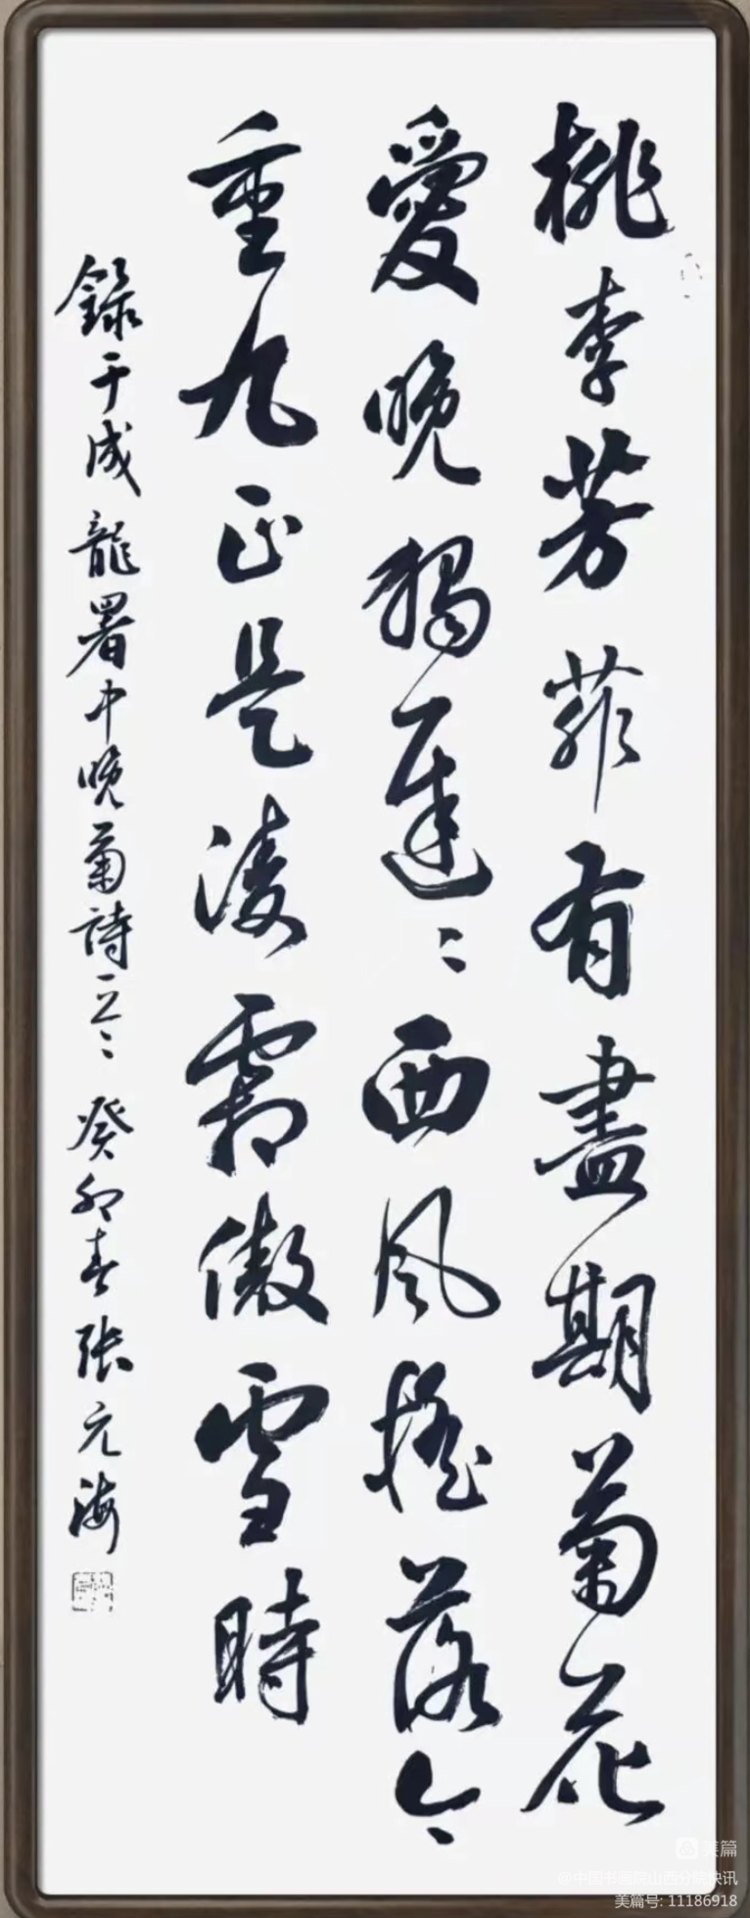 桃李芳菲有盡期菊花
愛晚獨遲〻西風搖落今
重九正是凌霜傲雪時
錄于成龍署中晚菊詩一首 癸卯春張元海
美篇
@中国书画院山西分院快讯
美篇号: 11186918